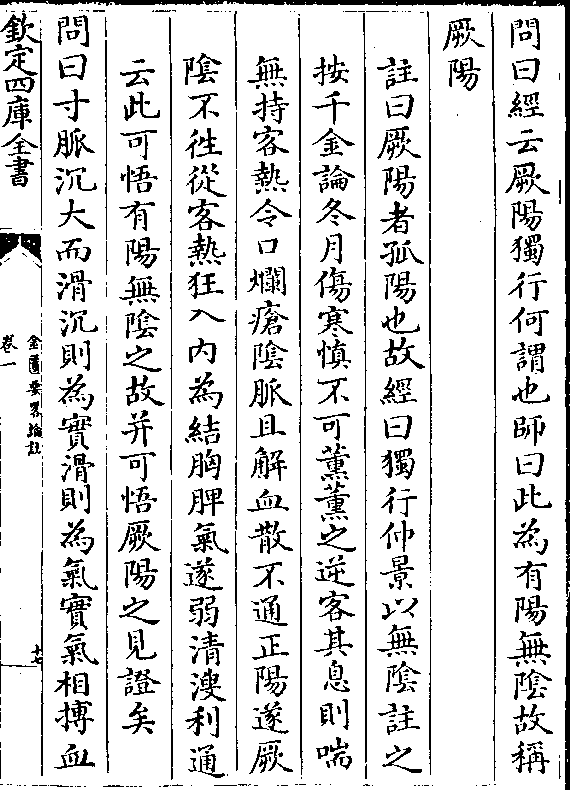 問曰經云厥陽獨行何謂也師曰此為有陽無陰故稱
厥陽
註曰厥陽者孤陽也故經曰獨行仲景以無陰註之
按千金論冬月傷寒慎不可薰薰之逆客其息則喘
無持客熱令口爛瘡陰脈且解血散不通正陽遂厥
陰不徃從客熱狂入內為結胸脾氣遂弱清溲利通
云此可悟有陽無陰之故并可悟厥陽之見證矣
問曰寸脈沉大而滑沉則為實滑則為氣實氣相搏血
欽定四庫全書
金匱要畧論註
卷一
十七